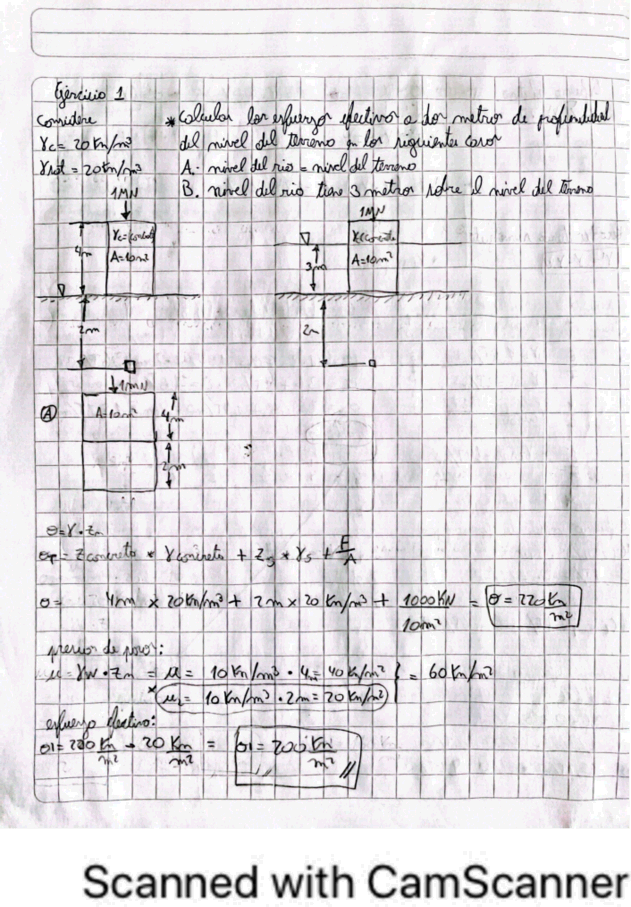 Ejercicio 1
Considere
γc = 20 Kn/m³
γsat = 20 Kn/m³
* Calcular los esfuerzo efectivos a dos metros de profundidad
del nivel del terreno en los siguientes casos
A.- nivel del rio = nivel del terreno
B. nivel del rio tiene 3 metros sobre el nivel del terreno
1MN
γc=concreto
A=10m²
4m
2m
1MN
γc(concreto
A=10m²
3m
2m
Ⓐ
1mN
A=10m²
4m
2m
σ=γ·Zn
σT = Zconcreto * γconcreto + Zs * γs + F/A
σ= 4m x 20Kn/m³ + 2m x 20 Kn/m³ + 1000KN/10m² = σ = 220 Kn/m²
presion de poros:
μ = γw · Zn = μ = 10 Kn/m³ · 4m = 40 Kn/m² } = 60 Kn/m²
* μ2 = 10 Kn/m³ · 2m = 20 Kn/m²
esfuerzo efectivo:
σ1 = 220 Kn/m² - 20 Kn/m² = σ1 = 200 Kn/m² //
Scanned with CamScanner